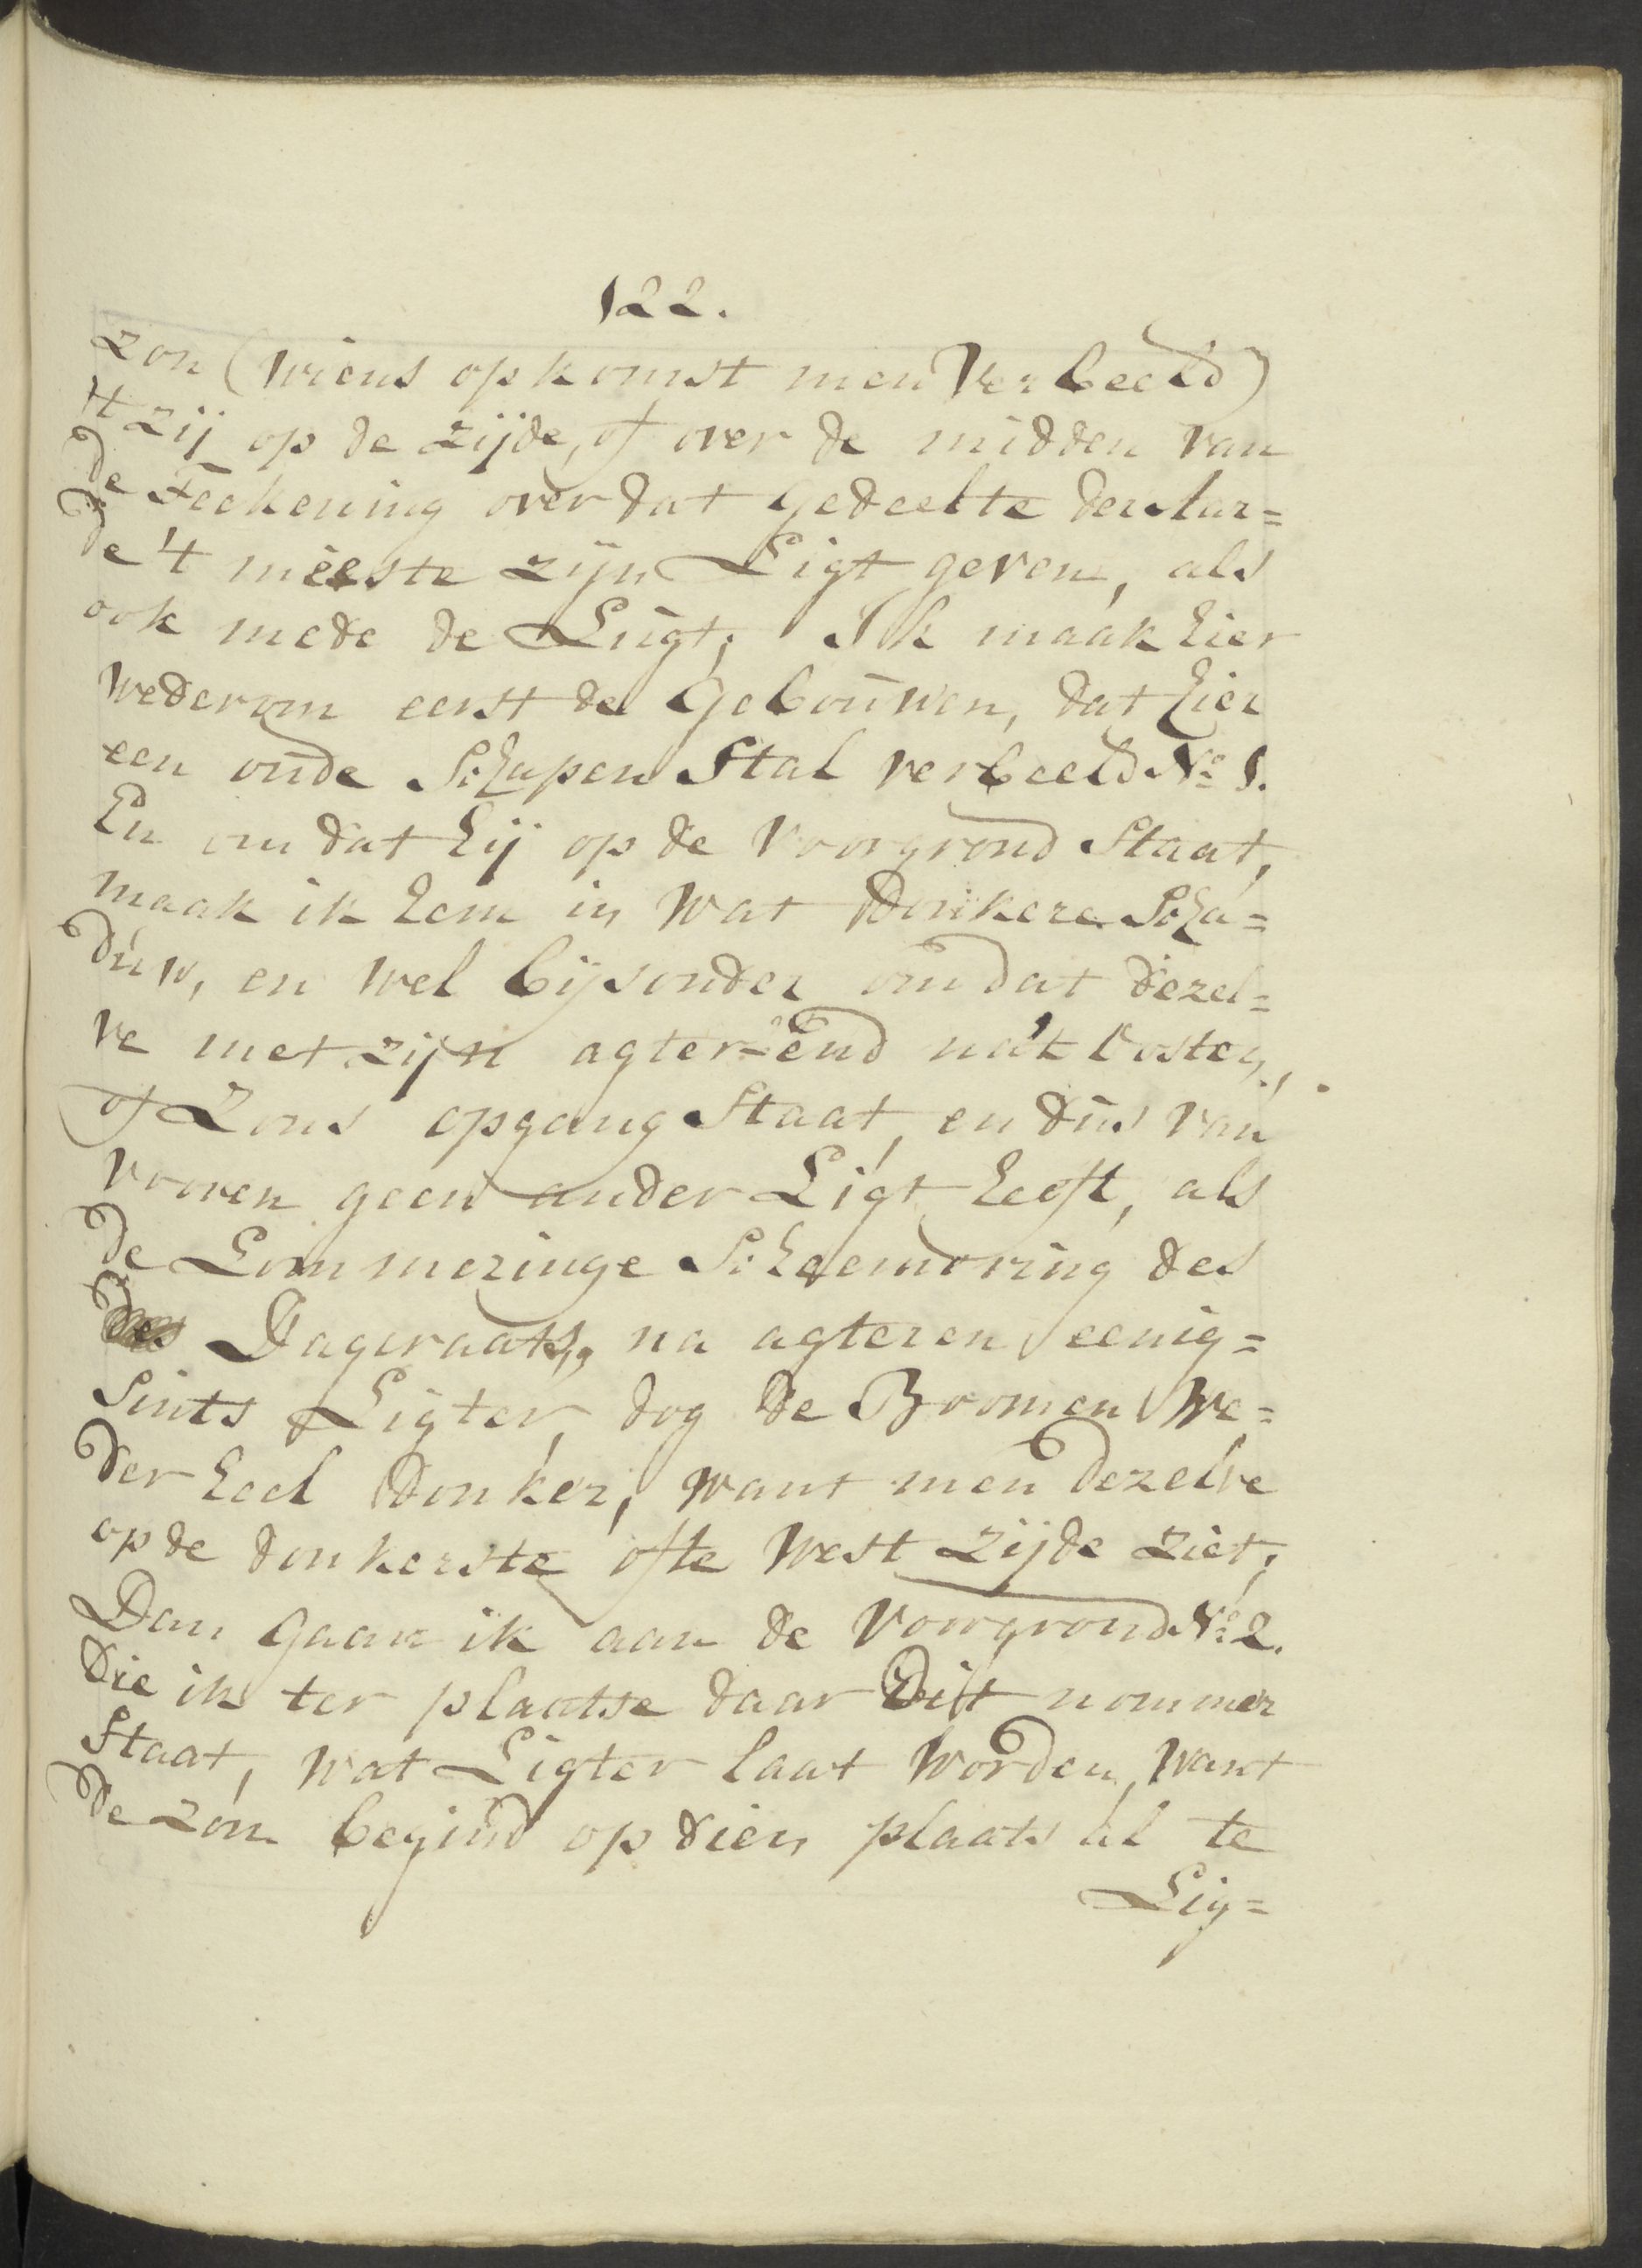 122.
zon (wiens opkomst men Verbeeld)
't zij op de zijde, of over de midden van
de Teekening over dat gedeelte der Aar=
de 't meeste zijn Ligt geven, als
ook mede de Lugt; Ik maak hier
wederom eerst de Gebouwen, dat hier
een oude Schapen Stal verbeeld No 1.
En om dat hij op de Voorgrond Staat,
maak ik hem in wat donkere Scha=
duw, en wel bijsonder om dat dezel=
ve met zijn agter-end na't Oosten,
of Zons opgang Staat, en dus van
vooren geen ander Ligt heeft, als
de Lommeringe Scheemering des
Dageraats, na agteren eenig=
sints Ligter, dog de Boomen we=
der heel donker, want men dezelve
op de donkerste ofte West zijde ziet;
Dan gaan ik aan de Voorgrond No 2.
Die ik ter plaatse daar Dit nommer
Staat, wat Ligter laat worden, want
de zon begind op dien plaats al te
Lig=